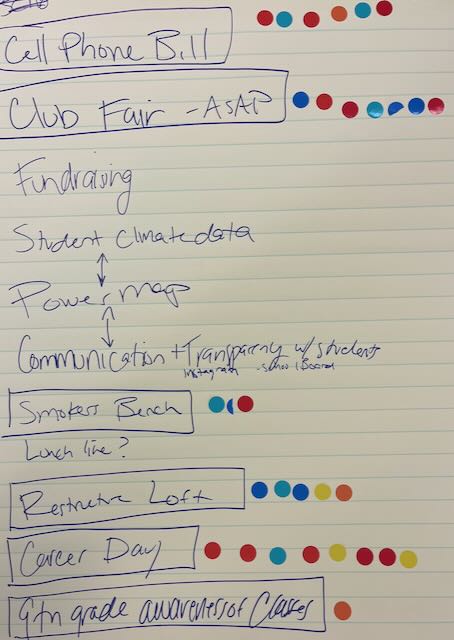 Cell Phone Bill
Club Fair - ASAP
Fundraising
Student Climate data
Power map
Communication + Transparency w/ students
Instagram - School Board
Smokers Bench
Lunch line?
Restructure Loft
Career Day
9th grade awareness of Classes